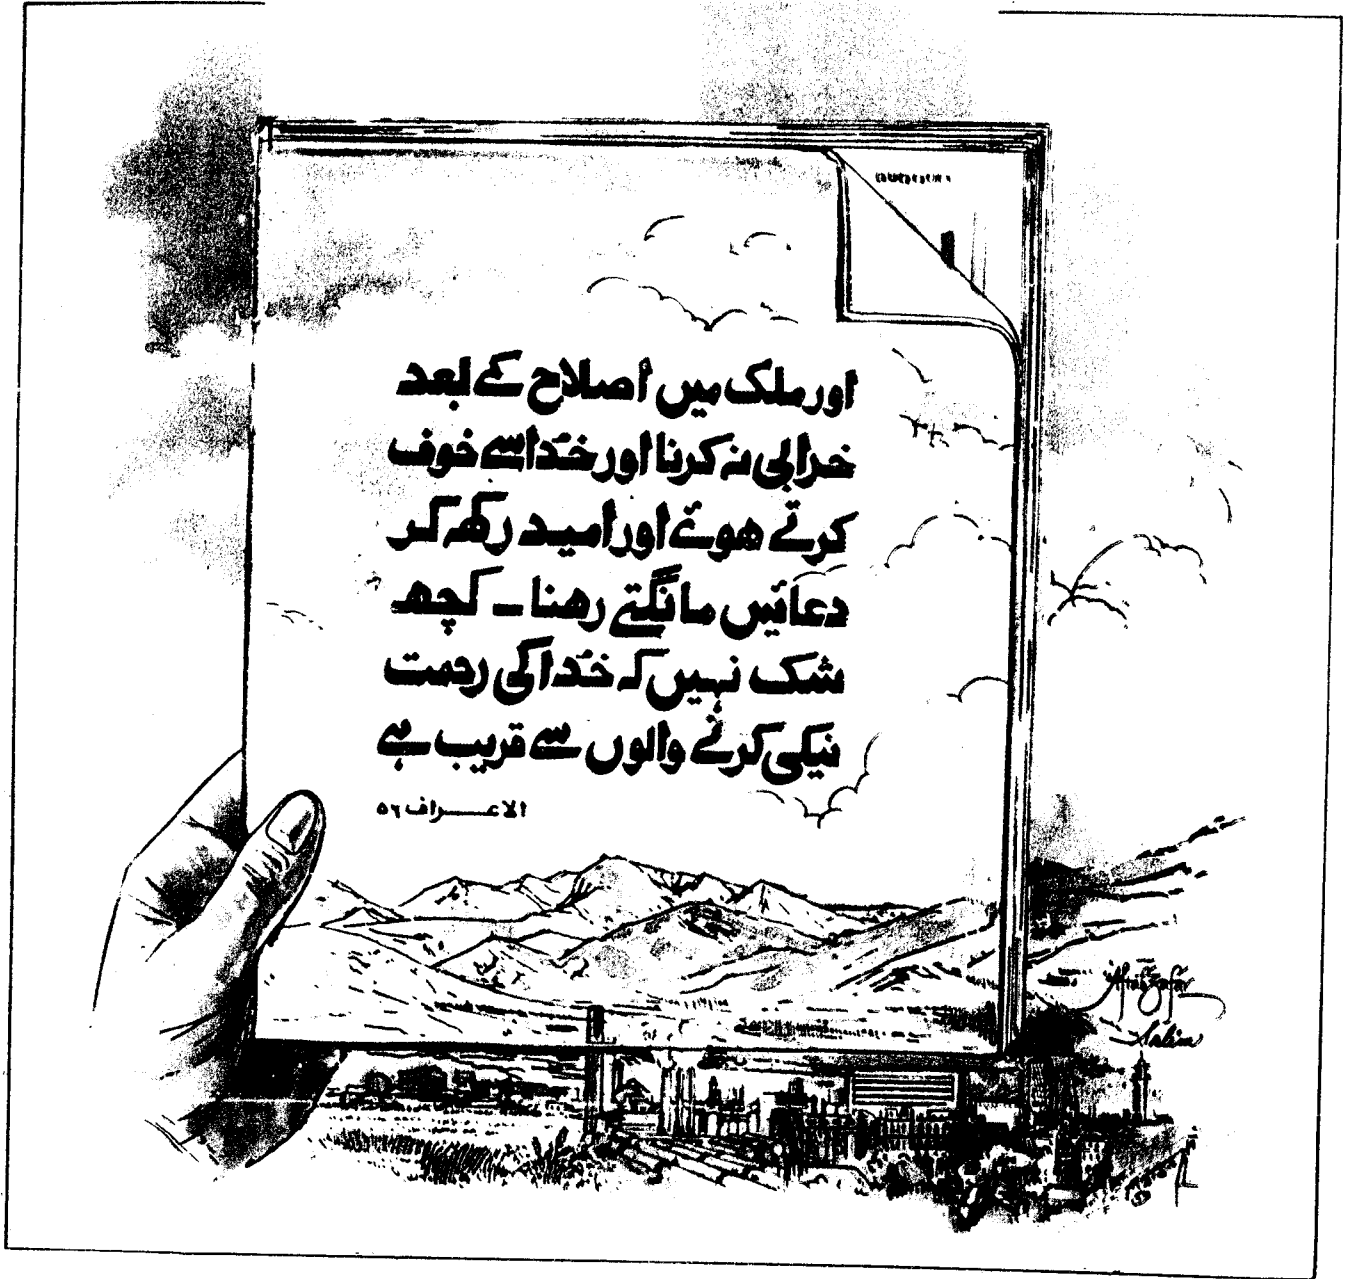 اور ملک میں اصلاح کے بعد
خرابی نہ کرنا اور خدا سے خوف
کرتے ہوئے اور امید رکھ کر
دعائیں مانگتے رھنا - کچھ
شک نہیں کہ خدا کی رحمت
نیکی کرنے والوں سے قریب ہے
الاعراف ۵۶
Aftab Zafar